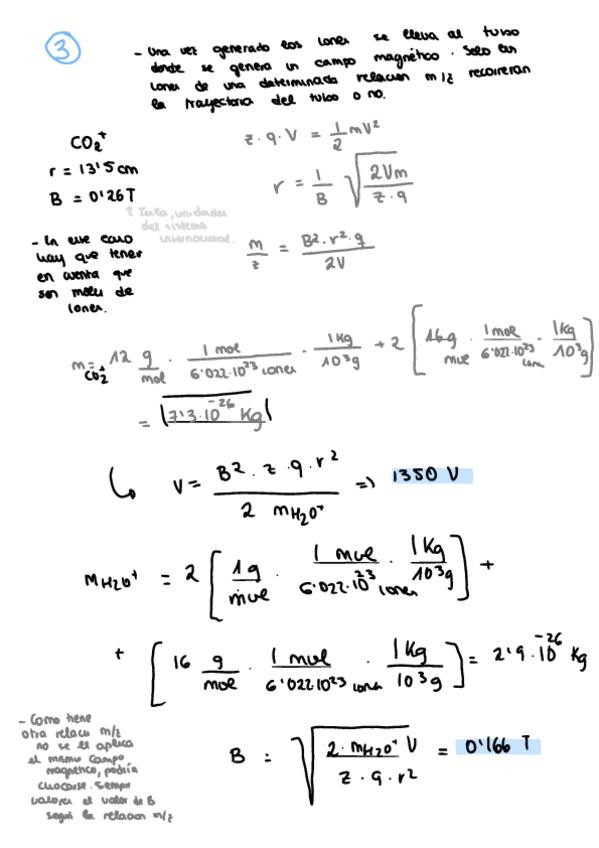 3
- Una vez generado los iones se lleva al tubo
donde se genera un campo magnético. Solo los
iones de una determinada relación m/z recorreran
la trayectoria del tubo o no.
CO₂⁺
r = 13'5 cm
B = 0'26 T
z·q·V = 1/2 mV²
r = 1/B √(2Vm / z·q)
↑ Tesla, unidades
del sistema
internacional.
- En este caso
hay que tener
en cuenta que
son moles de
iones.
m/z = B²·r²·q / 2V
m CO₂⁺ = 12 g/mol · 1 mol / 6'022·10²³ iones · 1 Kg / 10³ g + 2 [16 g / mol · 1 mol / 6'022·10²³ iones · 1 Kg / 10³ g]
= 7'3·10⁻²⁶ Kg
↳ V = B²·z·q·r² / 2 mH₂O⁺ => 1350 V
mH₂O⁺ = 2 [1 g / mol · 1 mol / 6'022·10²³ iones · 1 Kg / 10³ g] +
+ [16 g / mol · 1 mol / 6'022 10²³ iones · 1 Kg / 10³ g] = 2'9·10⁻²⁶ Kg
- Como tiene
otra relacu m/z
no se le aplica
el mismo campo
magnetico, podría
chocarse. Sempre
valores el valor de B
segun la relacion m/z
B = √(2·mH₂O⁺ V / z·q·r²) = 0'166 T